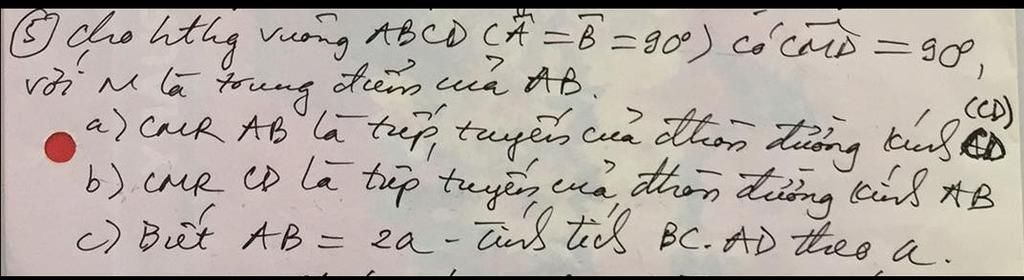 ⑤ cho hthg vuông ABCD (Â = B̂ = 90°) có CMD = 90°,
với M là trung điểm của AB.
(CD)
a) CMR AB là tiếp tuyến của đtròn đường kính CD
b) CMR CD là tiếp tuyến của đtròn đường kính AB
c) Biết AB = 2a - Tính tích BC.AD theo a.